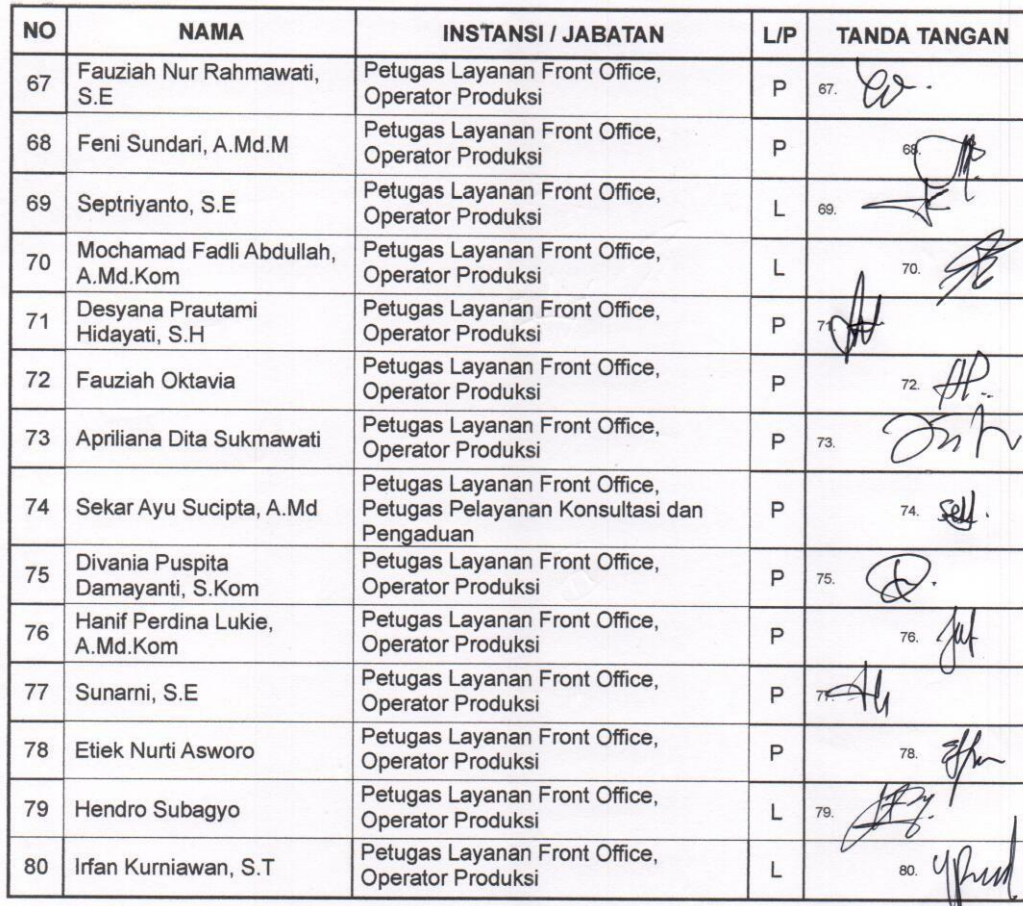 NO NAMA INSTANSI / JABATAN L/P TANDA TANGAN
67 Fauziah Nur Rahmawati, S.E Petugas Layanan Front Office, Operator Produksi P 67.
68 Feni Sundari, A.Md.M Petugas Layanan Front Office, Operator Produksi P 68.
69 Septriyanto, S.E Petugas Layanan Front Office, Operator Produksi L 69.
70 Mochamad Fadli Abdullah, A.Md.Kom Petugas Layanan Front Office, Operator Produksi L 70.
71 Desyana Prautami Hidayati, S.H Petugas Layanan Front Office, Operator Produksi P 71.
72 Fauziah Oktavia Petugas Layanan Front Office, Operator Produksi P 72.
73 Apriliana Dita Sukmawati Petugas Layanan Front Office, Operator Produksi P 73.
74 Sekar Ayu Sucipta, A.Md Petugas Layanan Front Office, Petugas Pelayanan Konsultasi dan Pengaduan P 74.
75 Divania Puspita Damayanti, S.Kom Petugas Layanan Front Office, Operator Produksi P 75.
76 Hanif Perdina Lukie, A.Md.Kom Petugas Layanan Front Office, Operator Produksi P 76.
77 Sunarni, S.E Petugas Layanan Front Office, Operator Produksi P 77.
78 Etiek Nurti Asworo Petugas Layanan Front Office, Operator Produksi P 78.
79 Hendro Subagyo Petugas Layanan Front Office, Operator Produksi L 79.
80 Irfan Kurniawan, S.T Petugas Layanan Front Office, Operator Produksi L 80.